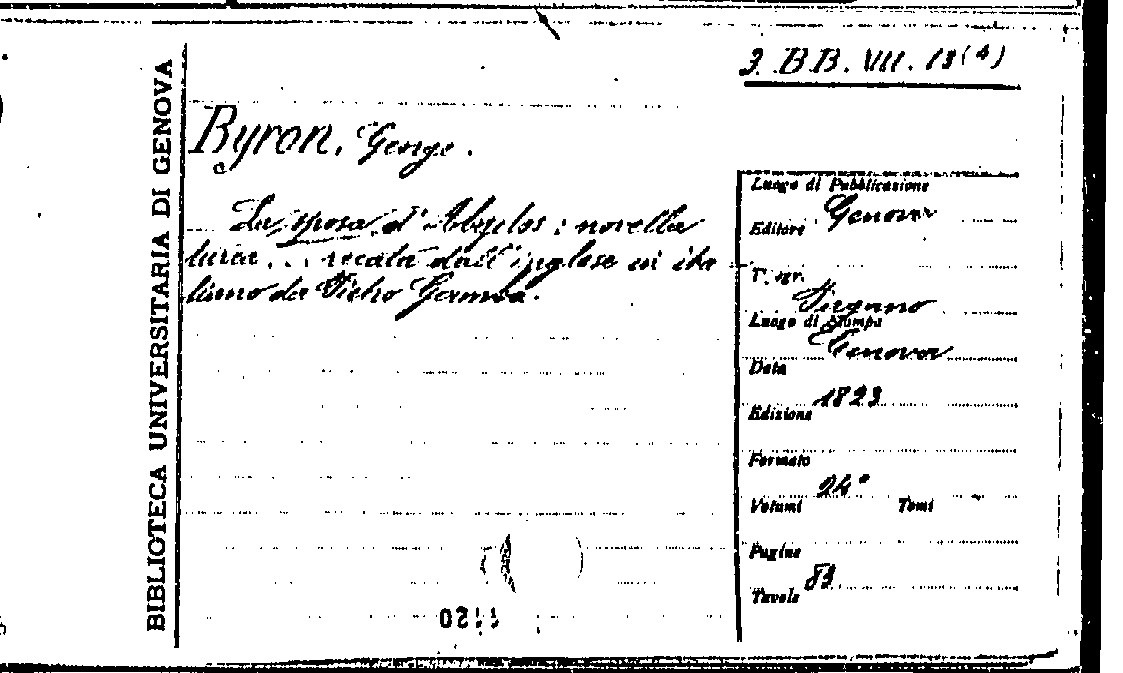 3. B B. VII. 18 (4)
BIBLIOTECA UNIVERSITARIA DI GENOVA
Byron, George.
La sposa d'Abydos : novella
turca ... recata dall'inglese in ita
liano da Pietro Gamba.
Luogo di Pubblicazione
Genova
Editore
Tipogr.
Luogo di Stampa
Genova
Data
1823
Edizione
Formato
24°
Volumi Tomi
Pagine
83
Tavole